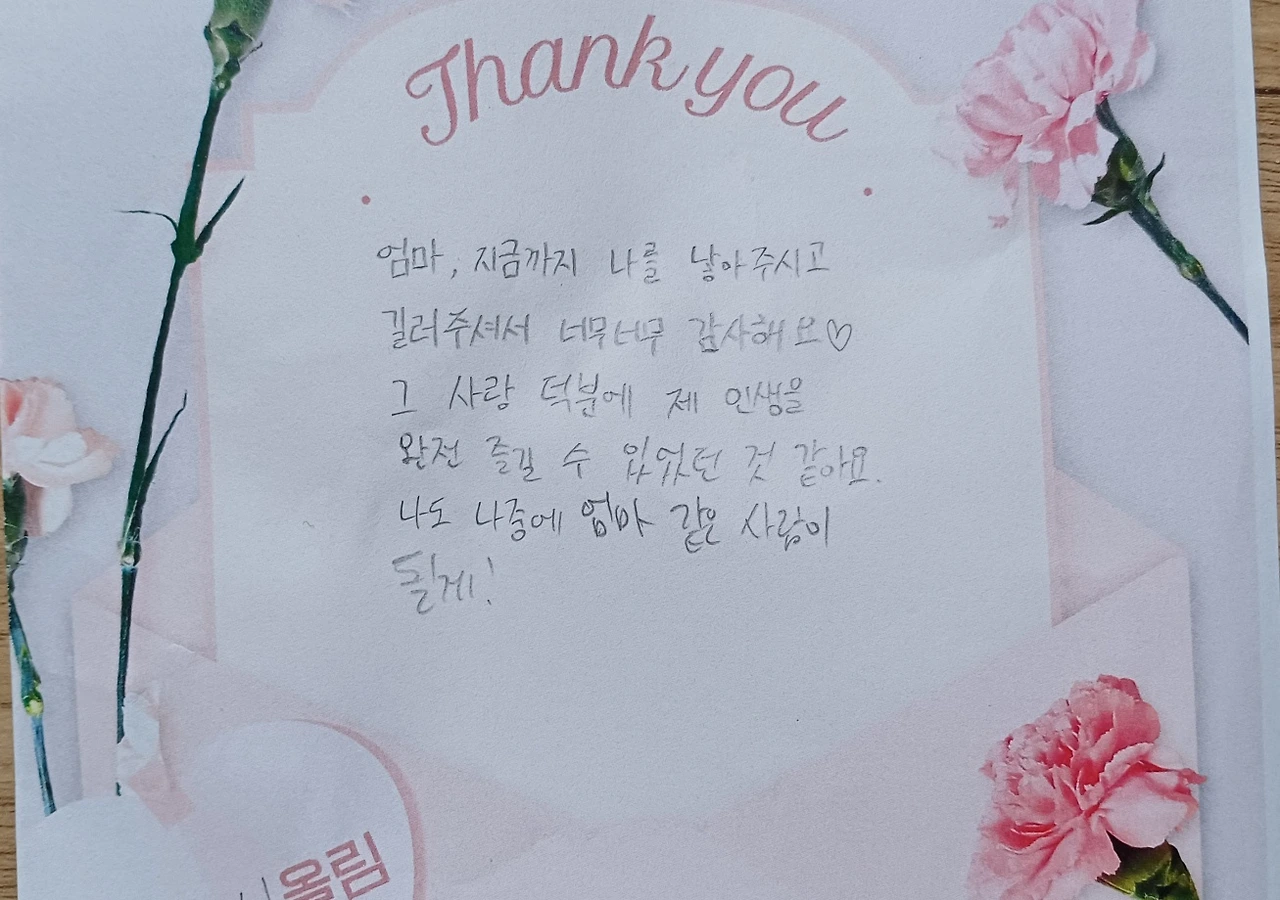 Thank you
엄마, 지금까지 나를 낳아주시고
길러주셔서 너무너무 감사해요♡
그 사랑 덕분에 제 인생을
완전 즐길 수 있었던 것 같아요.
나도 나중에 엄마 같은 사람이
될게!
올림